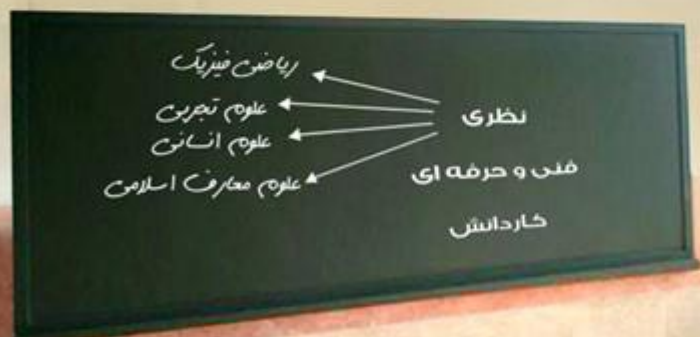 نظری
ریاضی فیزیک
علوم تجربی
علوم انسانی
علوم معارف اسلامی
فنی و حرفه ای
کاردانش